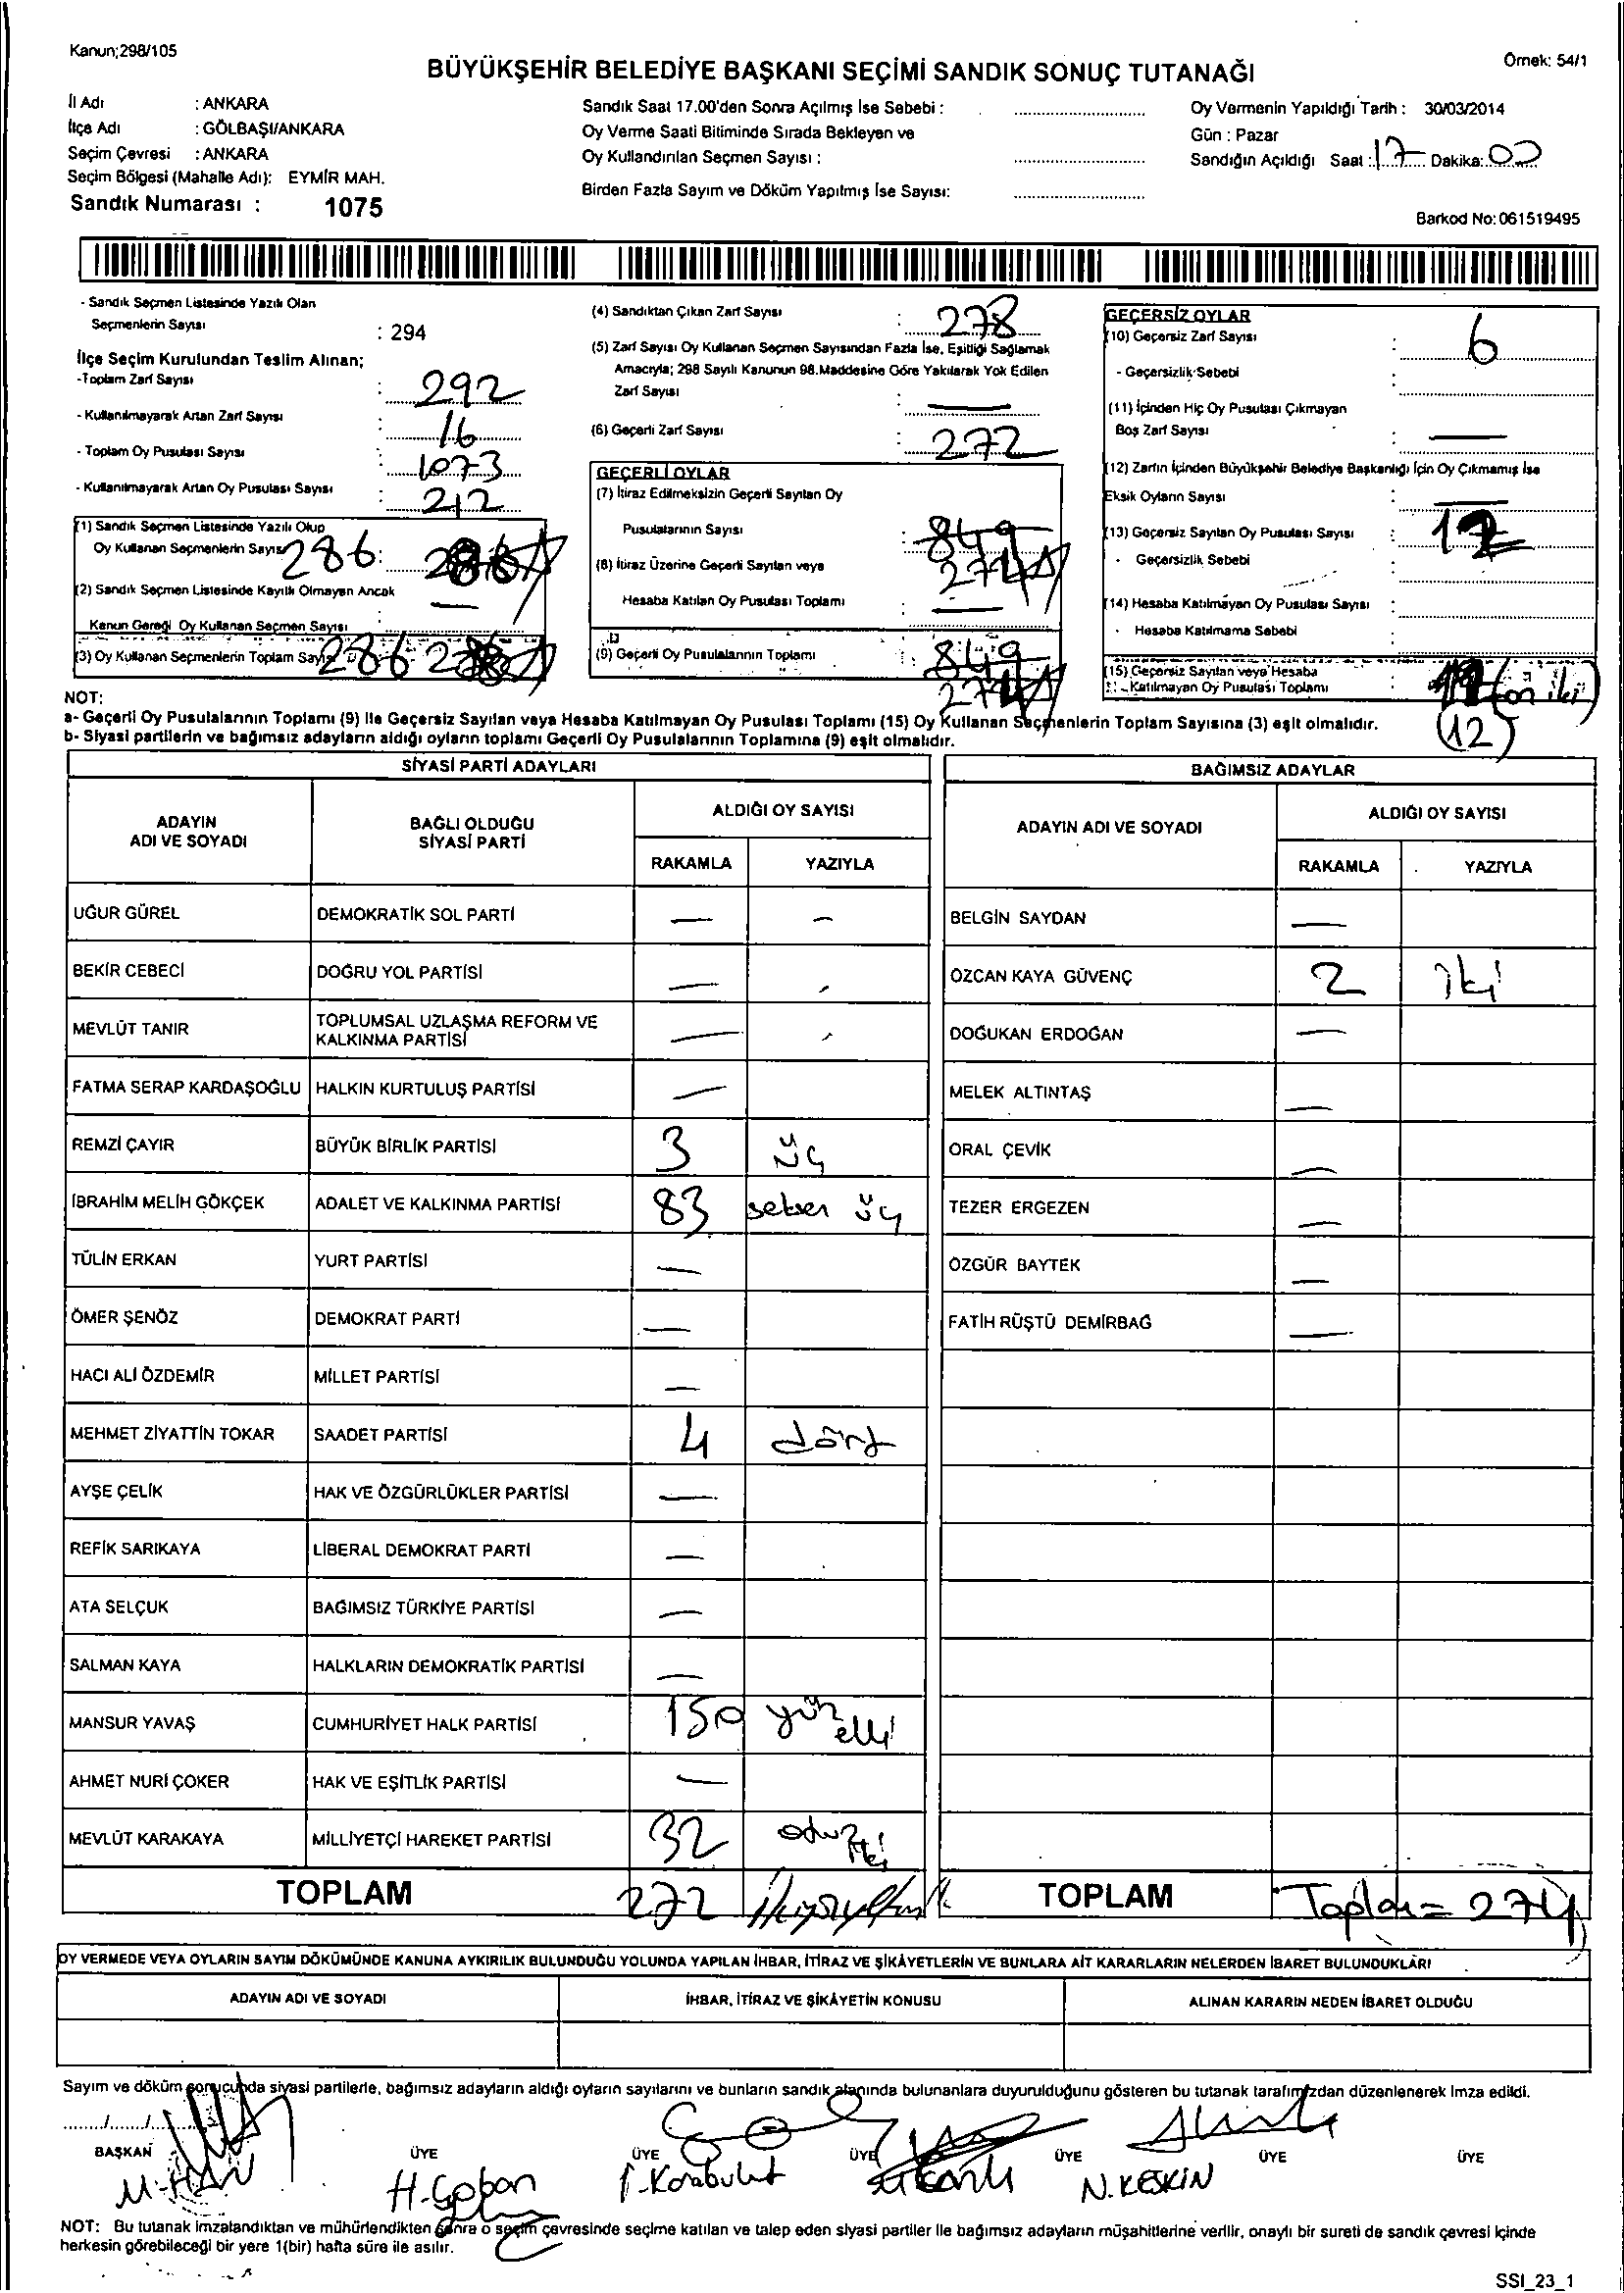 Kanun;298/105
Örnek: 54/1
BÜYÜKŞEHİR BELEDİYE BAŞKANI SEÇİMİ SANDIK SONUÇ TUTANAĞI
İl Adı : ANKARA
İlçe Adı : GÖLBAŞI/ANKARA
Seçim Çevresi : ANKARA
Seçim Bölgesi (Mahalle Adı): EYMİR MAH.
Sandık Numarası : 1075
Sandık Saat 17.00'den Sonra Açılmış İse Sebebi :
Oy Verme Saati Bitiminde Sırada Bekleyen ve
Oy Kullandırılan Seçmen Sayısı :
Birden Fazla Sayım ve Döküm Yapılmış İse Sayısı:
Oy Vermenin Yapıldığı Tarih : 30/03/2014
Gün : Pazar
Sandığın Açıldığı Saat : 17 Dakika: 00
Barkod No: 061519495
- Sandık Seçmen Listesinde Yazılı Olan
Seçmenlerin Sayısı : 294
İlçe Seçim Kurulundan Teslim Alınan;
-Toplam Zarf Sayısı : 292
- Kullanılmayarak Artan Zarf Sayısı : 16
- Toplam Oy Pusulası Sayısı : 1073
- Kullanılmayarak Artan Oy Pusulası Sayısı : 212
(1) Sandık Seçmen Listesinde Yazılı Olup
Oy Kullanan Seçmenlerin Sayısı 286
(2) Sandık Seçmen Listesinde Kayıtlı Olmayan Ancak
Kanun Gereği Oy Kullanan Seçmen Sayısı : —
(3) Oy Kullanan Seçmenlerin Toplam Sayısı 286
(4) Sandıktan Çıkan Zarf Sayısı : 278
(5) Zarf Sayısı Oy Kullanan Seçmen Sayısından Fazla İse, Eşitliği Sağlamak
Amacıyla; 298 Sayılı Kanunun 98.Maddesine Göre Yakılarak Yok Edilen
Zarf Sayısı : —
(6) Geçerli Zarf Sayısı : 272
GEÇERLİ OYLAR
(7) İtiraz Edilmeksizin Geçerli Sayılan Oy
Pusulalarının Sayısı : 849
274
(8) İtiraz Üzerine Geçerli Sayılan veya
Hesaba Katılan Oy Pusulası Toplamı : —
(9) Geçerli Oy Pusulalarının Toplamı : 849
274
GEÇERSİZ OYLAR
(10) Geçersiz Zarf Sayısı : 6
- Geçersizlik Sebebi :
(11) İçinden Hiç Oy Pusulası Çıkmayan
Boş Zarf Sayısı : —
(12) Zarfın İçinden Büyükşehir Belediye Başkanlığı İçin Oy Çıkmamış İse
Eksik Oyların Sayısı : —
(13) Geçersiz Sayılan Oy Pusulası Sayısı : 12
- Geçersizlik Sebebi
(14) Hesaba Katılmayan Oy Pusulası Sayısı :
- Hesaba Katılmama Sebebi :
(15) Geçersiz Sayılan veya Hesaba
Katılmayan Oy Pusulası Toplamı : (on iki)
(12)
NOT:
a- Geçerli Oy Pusulalarının Toplamı (9) ile Geçersiz Sayılan veya Hesaba Katılmayan Oy Pusulası Toplamı (15) Oy Kullanan Seçmenlerin Toplam Sayısına (3) eşit olmalıdır.
b- Siyasi partilerin ve bağımsız adayların aldığı oyların toplamı Geçerli Oy Pusulalarının Toplamına (9) eşit olmalıdır.
SİYASİ PARTİ ADAYLARI
ADAYIN ADI VE SOYADI BAĞLI OLDUĞU SİYASİ PARTİ ALDIĞI OY SAYISI
RAKAMLA YAZIYLA
UĞUR GÜREL DEMOKRATİK SOL PARTİ — —
BEKİR CEBECİ DOĞRU YOL PARTİSİ —
MEVLÜT TANIR TOPLUMSAL UZLAŞMA REFORM VE KALKINMA PARTİSİ —
FATMA SERAP KARDAŞOĞLU HALKIN KURTULUŞ PARTİSİ —
REMZİ ÇAYIR BÜYÜK BİRLİK PARTİSİ 3 üç
İBRAHİM MELİH GÖKÇEK ADALET VE KALKINMA PARTİSİ 83 seksen üç
TÜLİN ERKAN YURT PARTİSİ —
ÖMER ŞENÖZ DEMOKRAT PARTİ —
HACI ALİ ÖZDEMİR MİLLET PARTİSİ —
MEHMET ZİYATTİN TOKAR SAADET PARTİSİ 4 dört
AYŞE ÇELİK HAK VE ÖZGÜRLÜKLER PARTİSİ —
REFİK SARIKAYA LİBERAL DEMOKRAT PARTİ —
ATA SELÇUK BAĞIMSIZ TÜRKİYE PARTİSİ —
SALMAN KAYA HALKLARIN DEMOKRATİK PARTİSİ —
MANSUR YAVAŞ CUMHURİYET HALK PARTİSİ 150 yüz elli
AHMET NURİ ÇOKER HAK VE EŞİTLİK PARTİSİ —
MEVLÜT KARAKAYA MİLLİYETÇİ HAREKET PARTİSİ 32 otuz iki
TOPLAM 272
BAĞIMSIZ ADAYLAR
ADAYIN ADI VE SOYADI ALDIĞI OY SAYISI
RAKAMLA YAZIYLA
BELGİN SAYDAN —
ÖZCAN KAYA GÜVENÇ 2 iki
DOĞUKAN ERDOĞAN —
MELEK ALTINTAŞ —
ORAL ÇEVİK —
TEZER ERGEZEN —
ÖZGÜR BAYTEK —
FATİH RÜŞTÜ DEMİRBAĞ —
TOPLAM Toplam = 274
OY VERMEDE VEYA OYLARIN SAYIM DÖKÜMÜNDE KANUNA AYKIRILIK BULUNDUĞU YOLUNDA YAPILAN İHBAR, İTİRAZ VE ŞİKÂYETLERİN VE BUNLARA AİT KARARLARIN NELERDEN İBARET BULUNDUKLARI
ADAYIN ADI VE SOYADI İHBAR, İTİRAZ VE ŞİKÂYETİN KONUSU ALINAN KARARIN NEDEN İBARET OLDUĞU
Sayım ve döküm sonucunda siyasi partilerle, bağımsız adayların aldığı oyların sayılarını ve bunların sandık alanında bulunanlara duyurulduğunu gösteren bu tutanak tarafımızdan düzenlenerek imza edildi.
....../....../......
BAŞKAN ÜYE ÜYE ÜYE ÜYE ÜYE ÜYE
M. HAN H. Çoban Karabulut N. KESKİN
NOT: Bu tutanak imzalandıktan ve mühürlendikten sonra o seçim çevresinde seçime katılan ve talep eden siyasi partiler ile bağımsız adayların müşahitlerine verilir, onaylı bir sureti de sandık çevresi içinde
herkesin görebileceği bir yere 1(bir) hafta süre ile asılır.
SSI_23_1